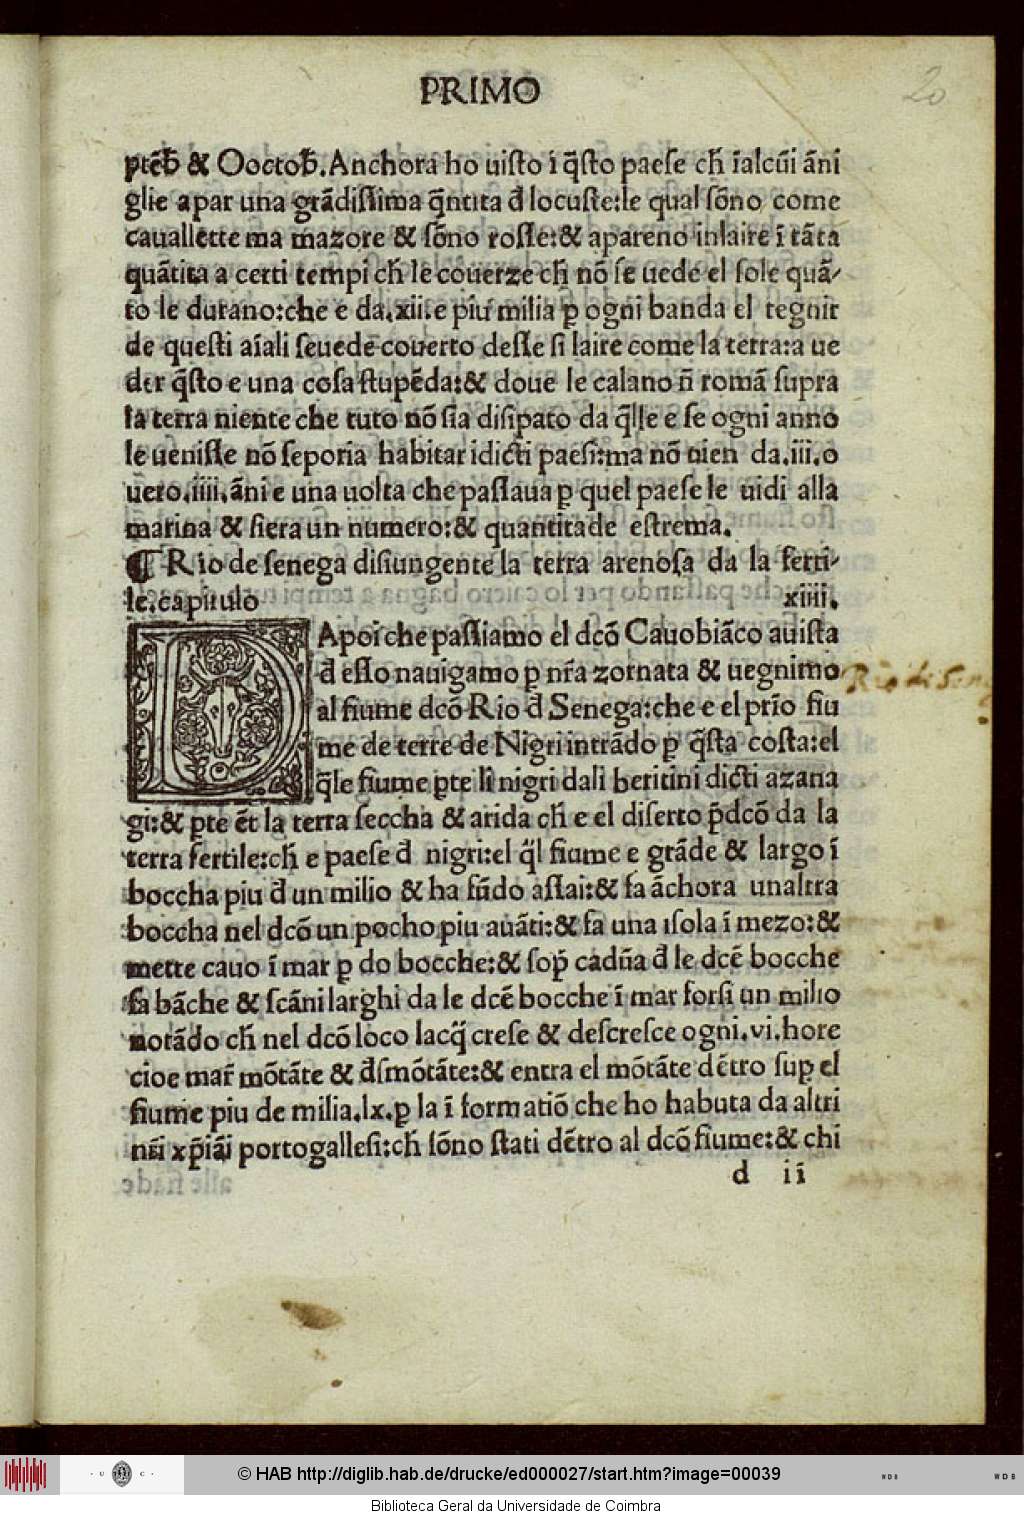 PRIMO
20
ptēƀ & Ooctoƀ. Anchora ho uisto i q̄sto paese ch̄ ī alcūi āni
glie apar una grādissima q̄ntita đ locuste: le qual sōno come
cauallette ma mazore & sōno rosse: & apareno inlaire ī tāta
quātita a certi tempi ch̄ le couerze ch̄ nō se uede el sole quā-
to le durano: che e da .xii. e piu milia ꝑ ogni banda el tegnir
de questi aīali seuede couerto desse si laire come la terra: a ue
der q̄sto e una cosa stupēda: & doue le calano ñ romā supra
la terra niente che tuto nō sia disipato da q̄lle e se ogni anno
le uenisse nō seporia habitar i dicti paesi: ma nō uien da .iii. o
uero .iiii. āni e una uolta che passaua ꝑ quel paese le uidi alla
marina & siera un numero: & quantitade estrema.
¶ Rio de senega disiungente la terra arenosa da la ferti-
le. capitulo xiiii.
DApoi che passiamo el dcō Cauobiāco auista
đ esso nauigamo ꝑ nr̄a zornata & uegnimo
al fiume dcō Rio đ Senega: che e el prīo fiu
me de terre de Nigri intrādo ꝑ q̄sta costa: el
q̄le fiume ꝑte li nigri dali beritini dicti azana
gi: & ꝑte ēt la terra seccha & arida ch̄ e el diserto p̄dcō da la
terra fertile: ch̄ e paese đ nigri: el q̄l fiume e grāde & largo ī
boccha piu đ un milio & ha fūdo assai: & fa āchora unaltra
boccha nel dcō un pocho piu auāti: & fa una isola ī mezo: &
mette cauo ī mar ꝑ do bocche: & soꝑ cadūa đ le dcē bocche
fa bāche & scāni larghi da le dcē bocche ī mar forsi un milio
notādo ch̄ nel dcō loco lacq̄ crese & descresce ogni .vi. hore
cioe mar̄ mōtāte & đsmōtāte: & entra el mōtāte dētro suꝑ el
fiume piu de milia .lx. ꝑ la ī formatiō che ho habuta da altri
nr̄i xp̄iāi portogallesi: ch̄ sōno stati dētro al dcō fiume: & chi
d iī
Rio di Sen
© HAB http://diglib.hab.de/drucke/ed000027/start.htm?image=00039
· U C ·
WDB
WDB
Biblioteca Geral da Universidade de Coimbra